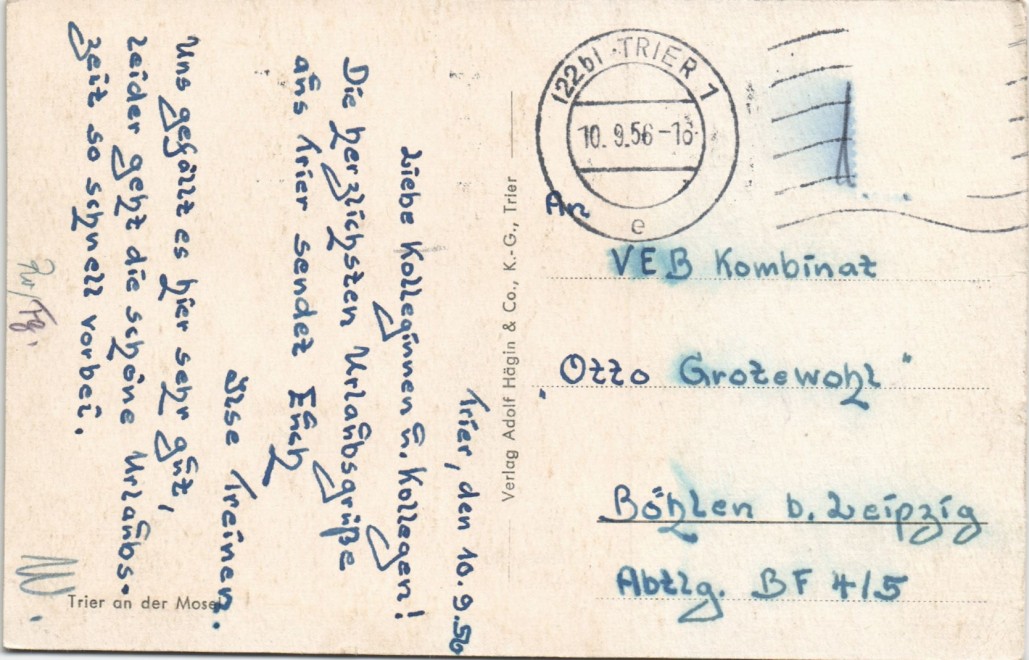 Trier, den 10.9.56
Liebe Kolleginnen u. Kollegen!
Die herzlichsten Urlaubsgrüße
aus Trier sendet Euch
Ilse Treinen.
Uns gefällt es hier sehr gut,
leider geht die schöne Urlaubs-
zeit so schnell vorbei.
Trier an der Mosel
Verlag Adolf Hägin & Co., K.-G., Trier
(22b) TRIER 1
10.9.56-18
e
An
VEB Kombinat
"Otto Grotewohl"
Böhlen b. Leipzig
Abtlg. BF 4/5